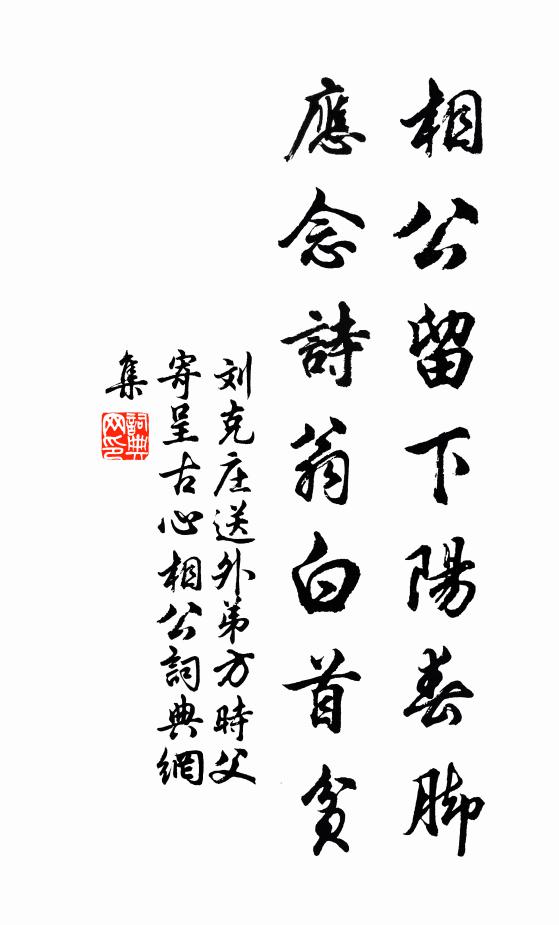 相公留下陽春脚
應念詩翁白首貧
刘克庄送外弟方時父
寄呈古心相公詞典網
集
詞典網印